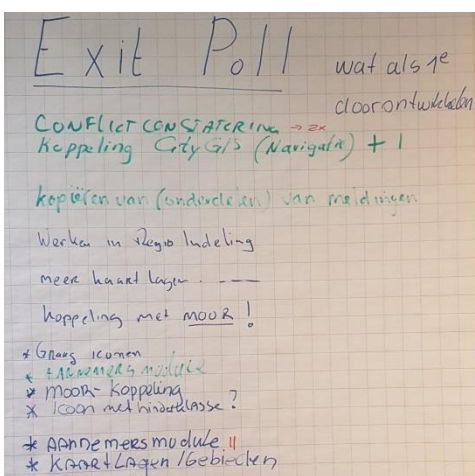 Exit Poll
wat als 1e
doorontwikkelen
CONFLICTCONSTATERING → 2x
Koppeling CityGIS (Navigator) + 1
kopiëren van (onderdelen) van meldingen
Werken in Regio Indeling
meer kaart lagen. ---
koppeling met MOOR !
* Graag iconen
* AANNEMERSmodule
* MOOR-koppeling
* Icoon met hinderklasse ?
* AANNemersmodule 11
* KAARTLAgen/Gebieden